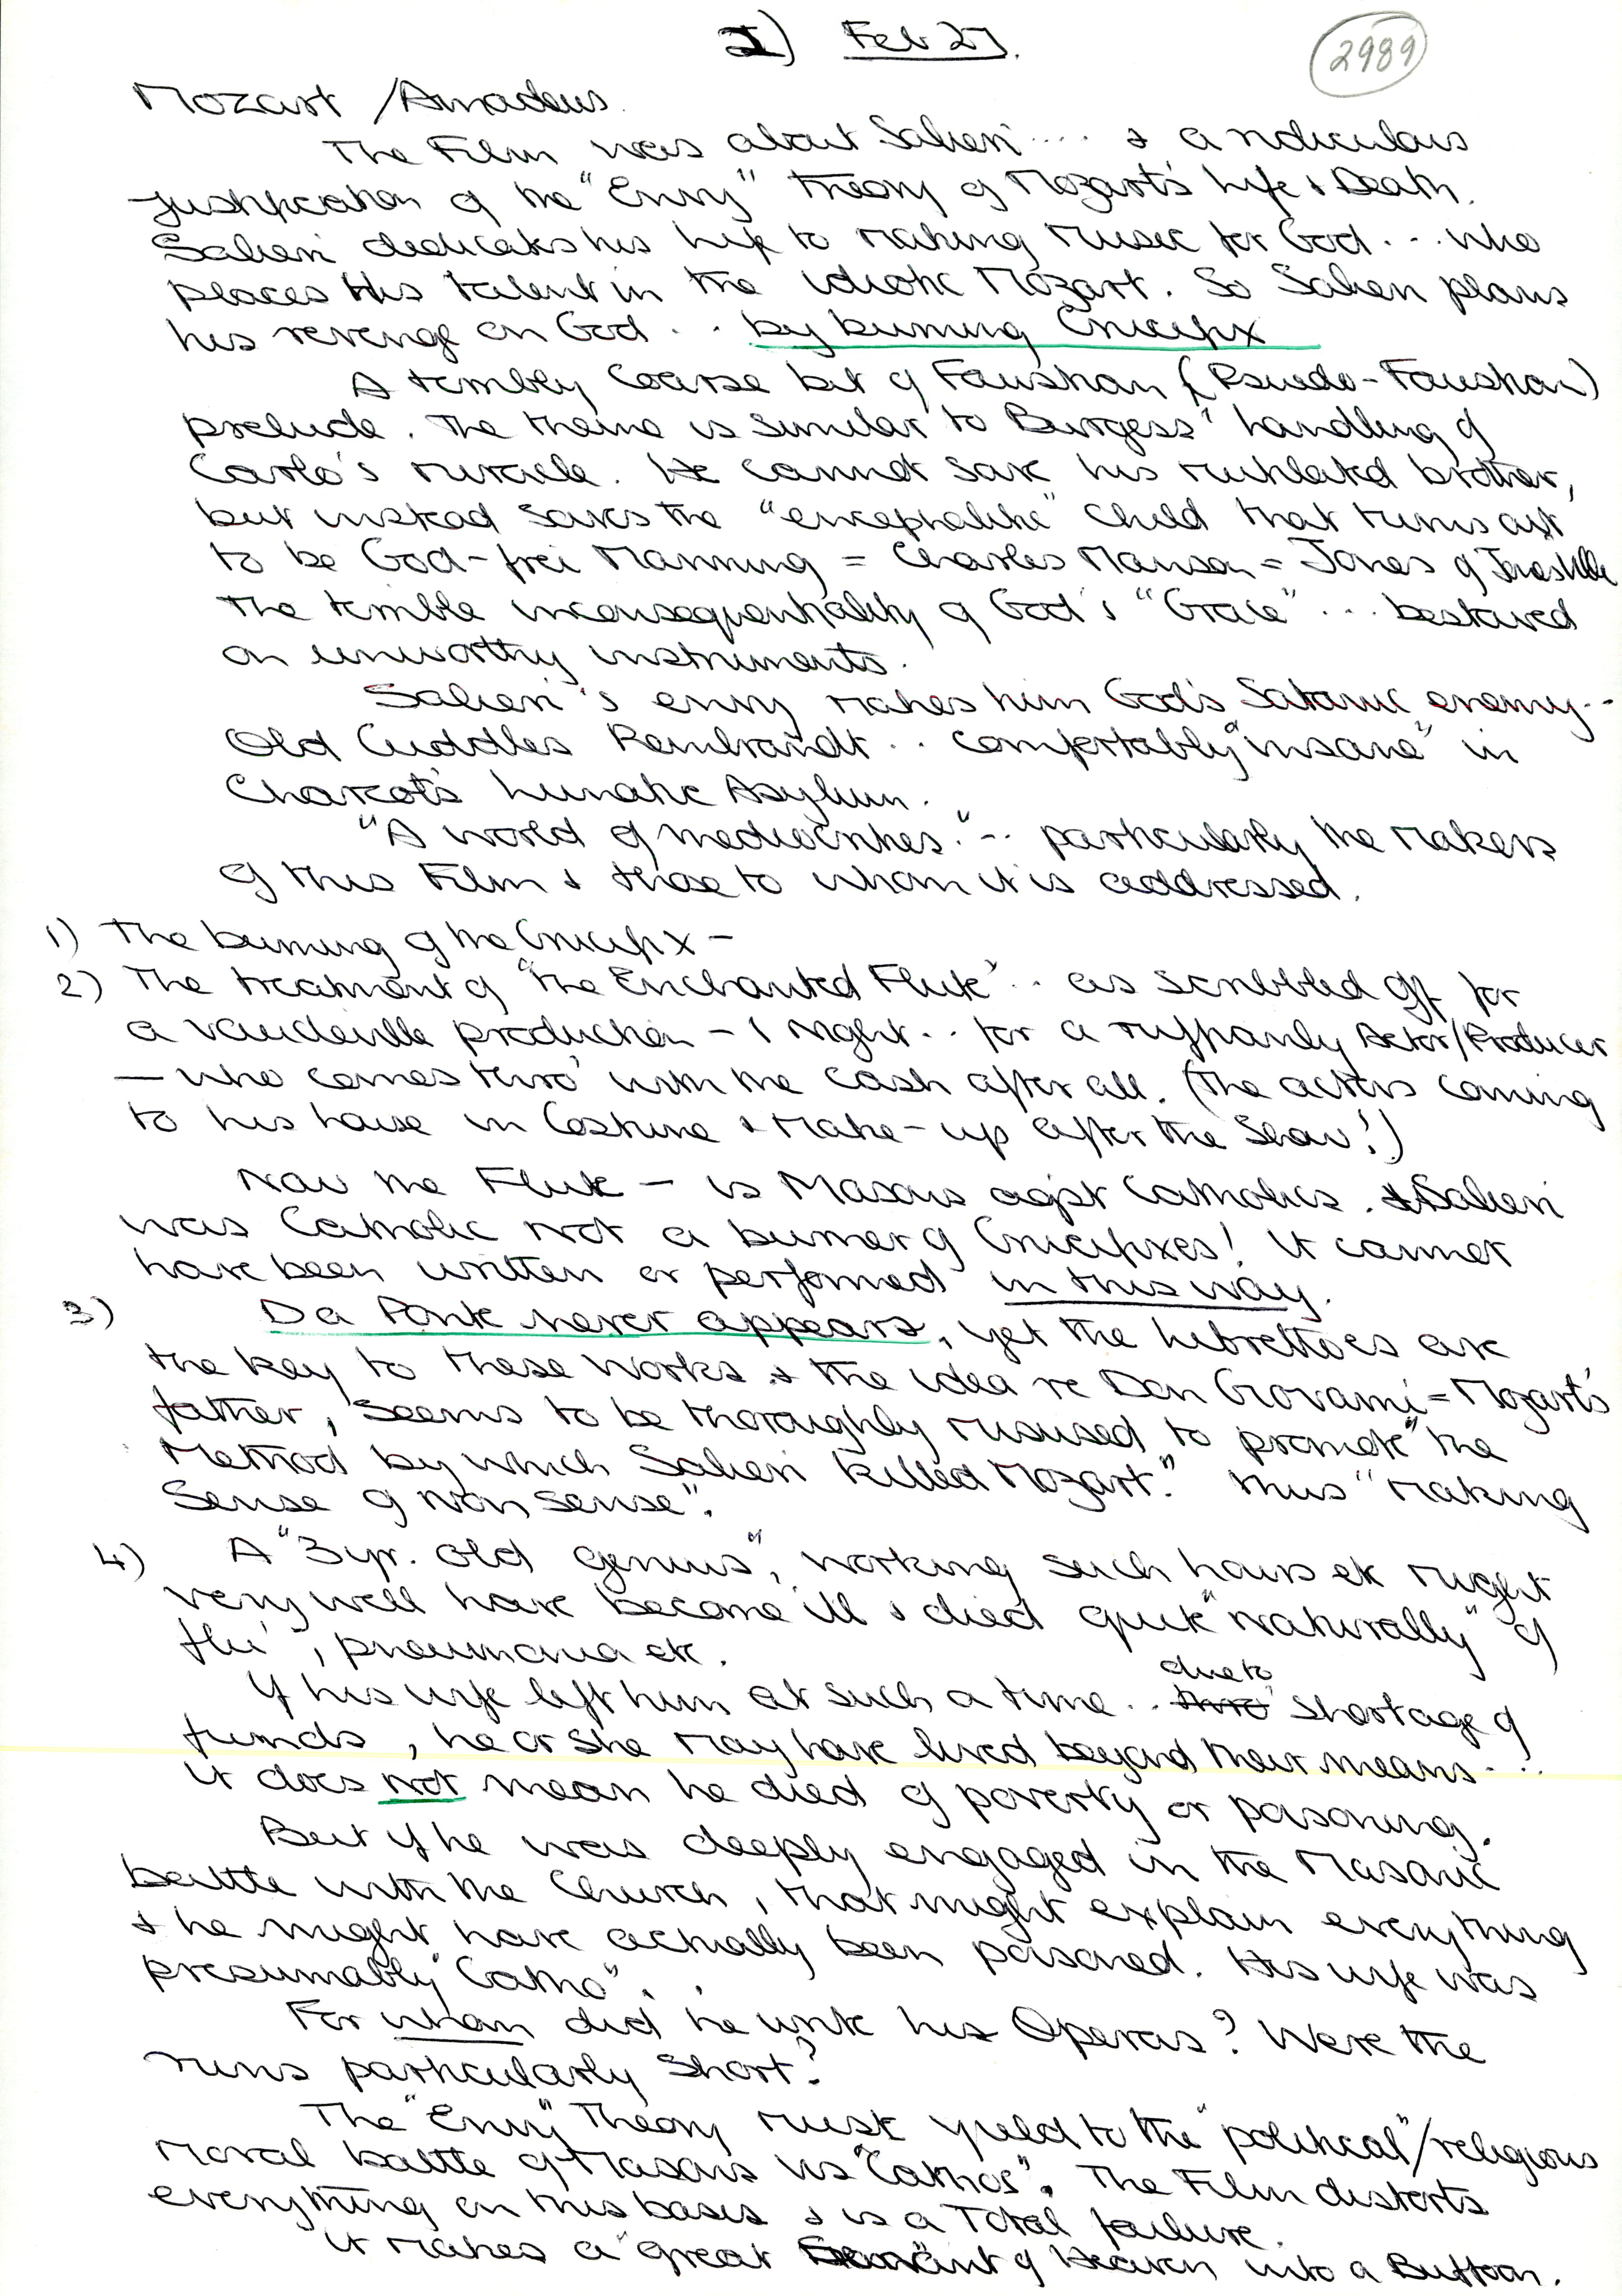 I) Feb 27.
2989
Mozart / Amadeus.
The Film was about Salieri .... & a ridiculous
justification of the "Envy" theory of Mozart's Life & Death.
Salieri dedicates his life to making Music for God ... who
places His talent in the idiotic Mozart. So Salieri plans
his revenge on God .. by burning Crucifix
A terribly coarse bit of Faustian (Psuedo-Faustian)
prelude. The theme is similar to Burgess' handling of
Carlo's miracle. He cannot save his mutilated brother,
but instead saves the "encephalitic" child that turns out
to be God-frei Manning = Charles Manson = Jones of Jonesville
The terrible inconsequentiality of God's "Grace" ... bestowed
on unworthy instruments.
Salieri's envy makes him God's Satanic enemy..
Old Cuddles Rembrandt .. comfortably "insane" in
Charcot's Lunatic Asylum.
"A world of mediocrities." .. particularly the makers
of this Film & those to whom it is addressed.
1) The burning of the Crucifix -
2) The treatment of "The Enchanted Flute" .. as scribbled off for
a vaudeville production - 1 night .. for a ruffianly Actor/Producer
— who comes thro' with the cash after all. (The actors coming
to his house in Costume & Make-up after the Show!)
Now the Flute — is Masons agst Catholics. Salieri
was Catholic not a burner of Crucifixes! It cannot
have been written or performed in this way.
3) Da Ponte never appears, yet the librettoes are
the key to these works & the idea re Don Giovanni = Mozart's
father, seems to be thoroughly misused to promote "the
Method by which Salieri killed Mozart." Thus "Making
Sense of Non sense".
4) A "3 yr. old genius", working such hours etc might
very well have become ill & died quite "naturally" of
flu', pneumonia etc.
If his wife left him at such a time .. due to shortage of
funds, he or she may have lived beyond their means ...
it does not mean he died of poverty or poisoning.
But if he was deeply engaged in the Masonic
battle with the Church, that might explain everything
& he might have actually been poisoned. His wife was
presumably "Catho".
For whom did he write his Operas? Were the
runs particularly short?
The "Envy" Theory must yield to the "political"/religious
moral battle of Masons vs "Cathos". The Film distorts
everything on this basis & is a Total failure.
It makes a "great Servant of Heaven" into a Buffoon.